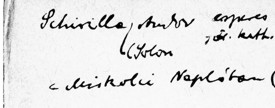 Schirilla Andor esperes
gör. kath.
(Solon
"Miskolci Naplóban (